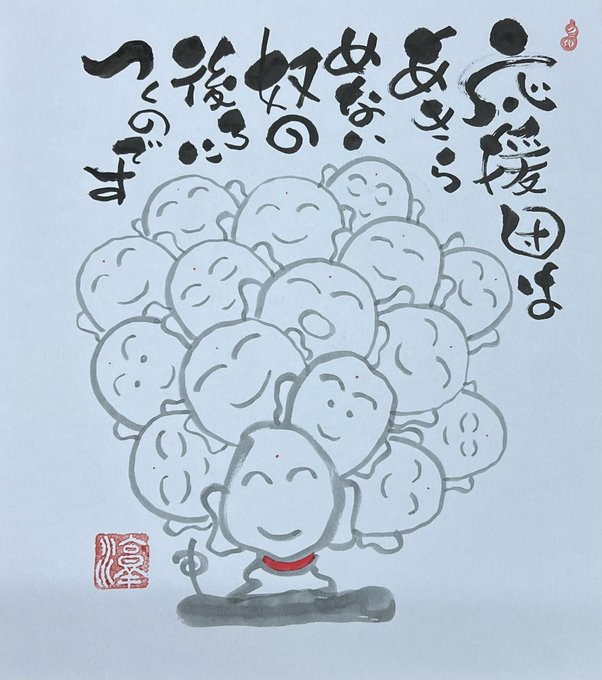 応援団は
あきら
めない
奴の
後ろに
つくのです
淳